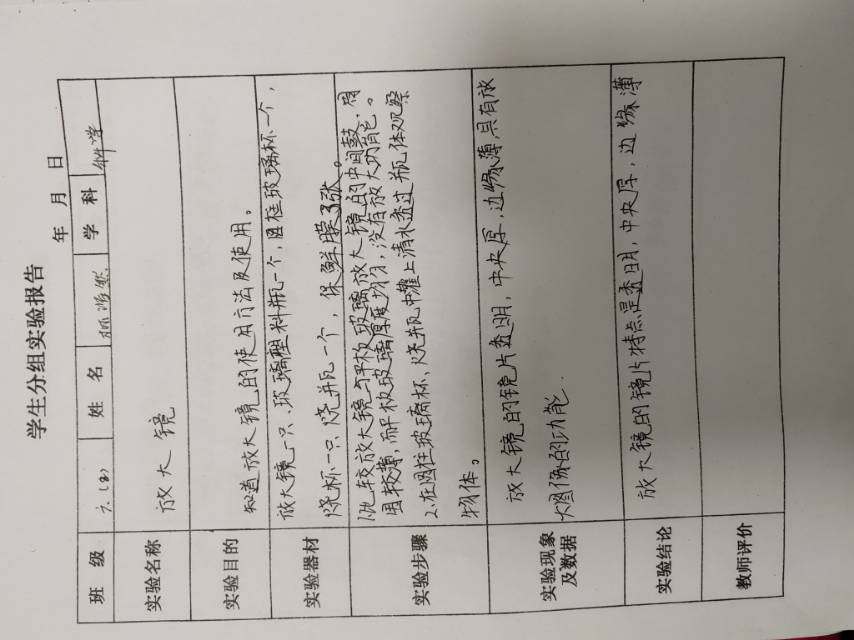 学生分组实验报告
年 月 日
班 级 六.(3) 姓 名 学 科 科学
实验名称 放大镜
实验目的 知道放大镜的使用方法及使用。
实验器材 放大镜一只,玻璃塑料瓶一个,圆框玻璃杯一个,
烧杯一只 烧瓶一个,保鲜膜3张。
实验步骤 1.比较放大镜与平板玻璃放大镜的中间鼓,周
围较薄,而平板玻璃厚度均匀,没有放大功能。
2.在圆柱玻璃杯、烧瓶中灌上清水透过瓶体观察
物体。
实验现象
及数据
放大镜的镜片透明,中央厚,边缘薄,具有放
大图像的功能.
实验结论 放大镜的镜片特点是透明,中央厚,边缘薄
教师评价